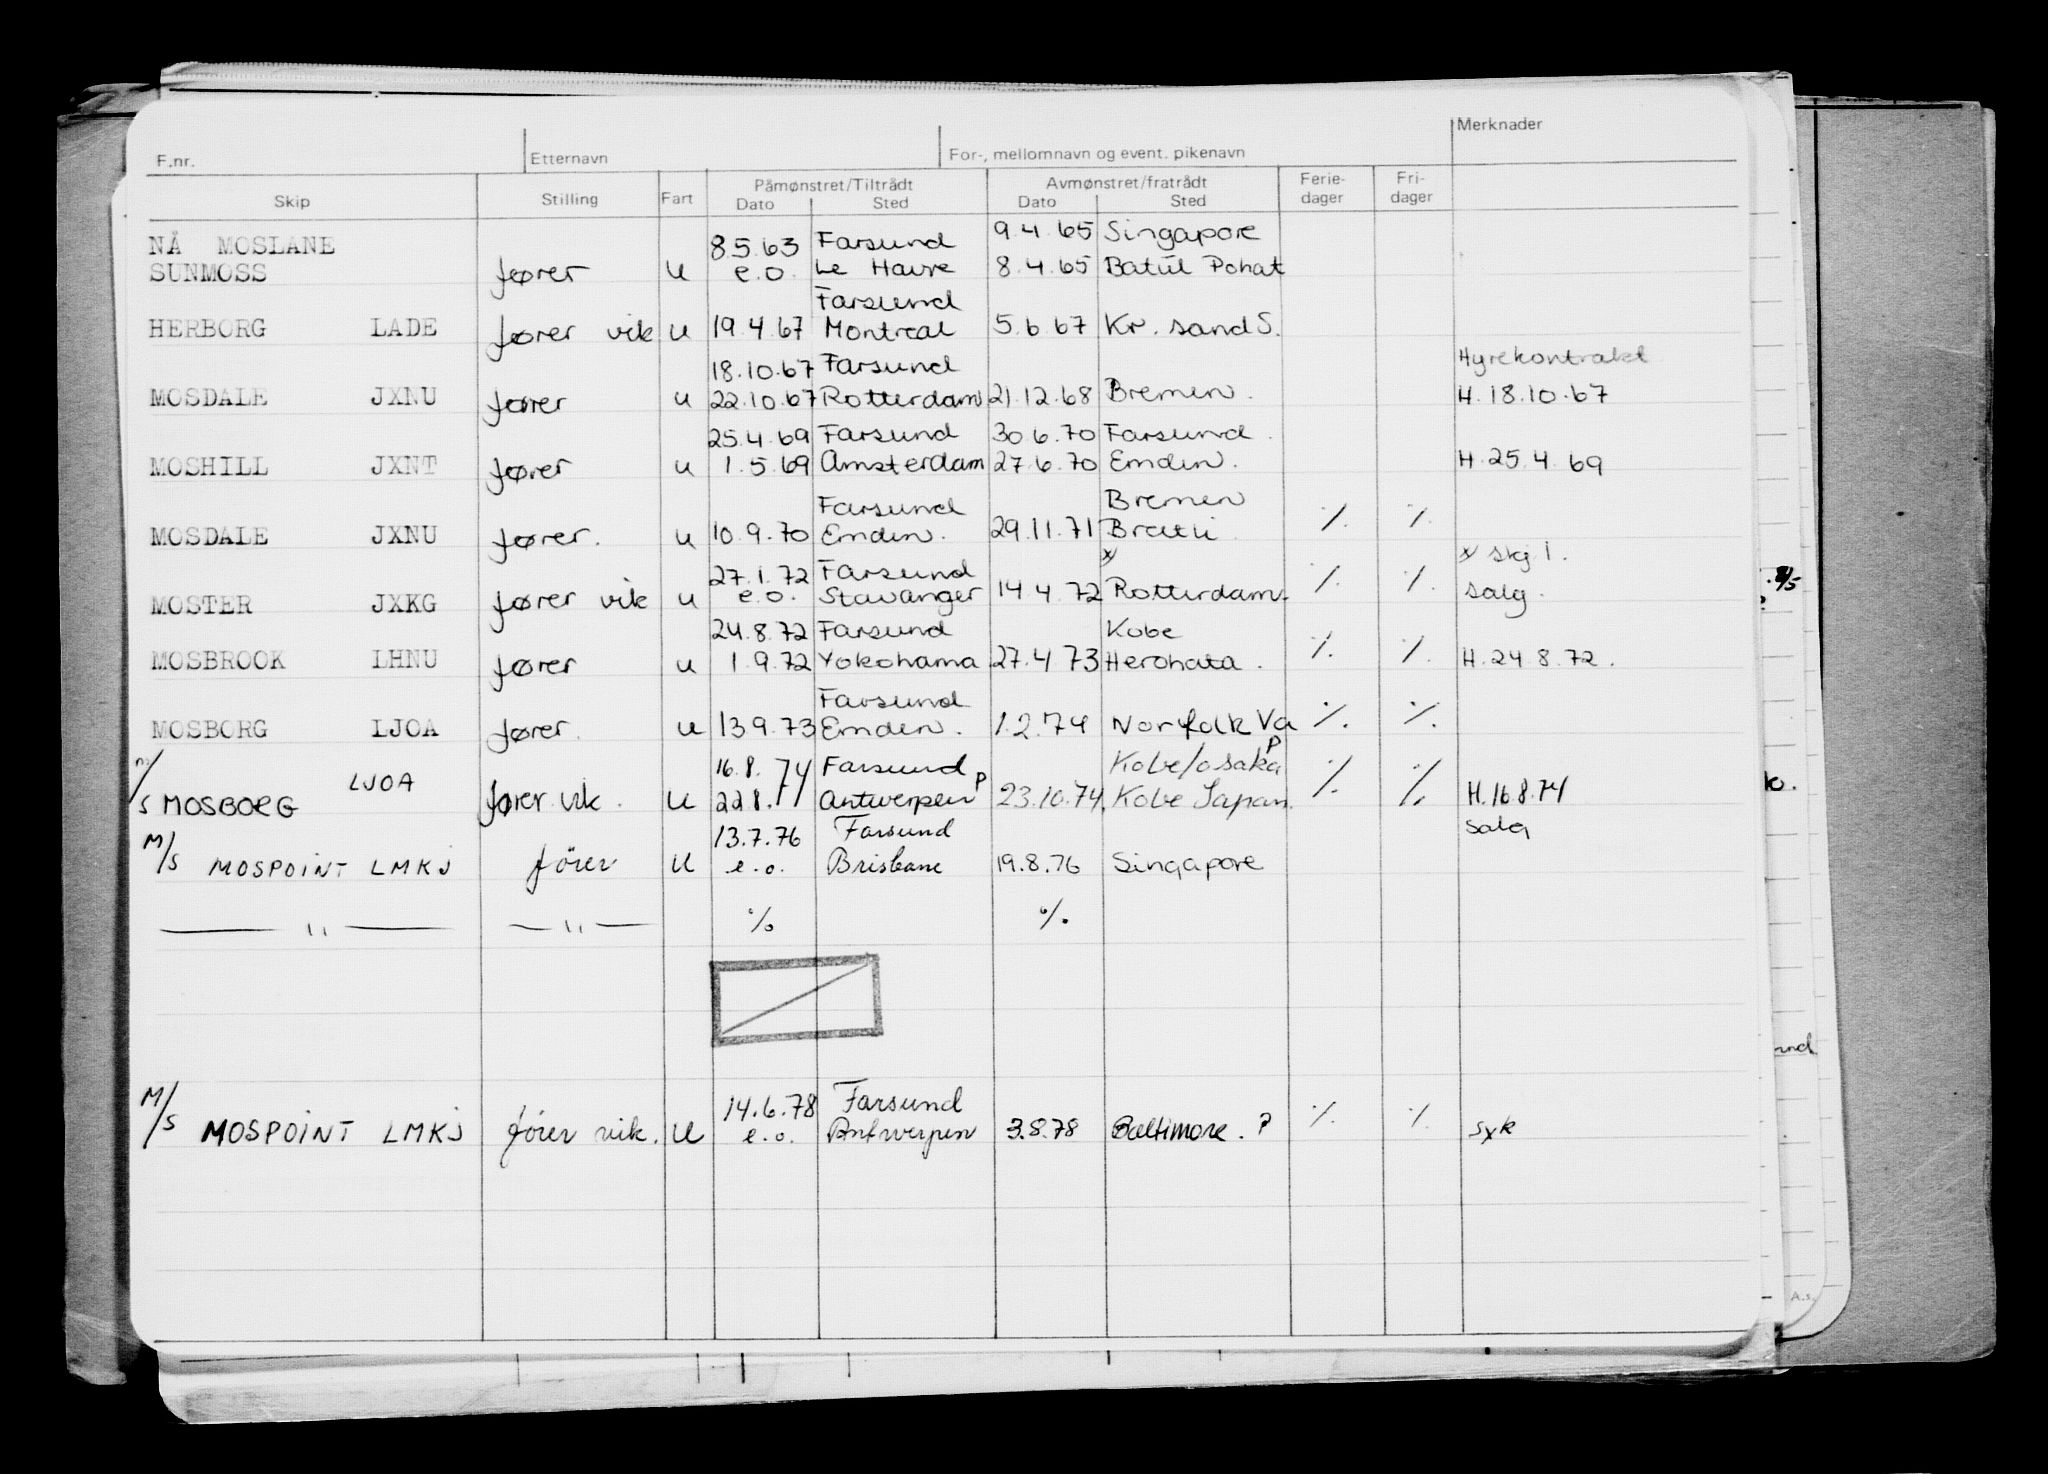 F.nr. Etternavn For-, mellomnavn og event. pikenavn Merknader
Skip Stilling Fart Påmønstret/Tiltrådt Avmønstret/fratrådt Ferie- Fri-
Dato Sted Dato Sted dager dager
NÅ MOSLANE 8.5.63 Farsund 9.4.65 Singapore
SUNMOSS fører u e.o. Le Havre 8.4.65 Batu Pahat
Farsund
HERBORG LADE fører vik u 19.4.67 Montreal 5.6.67 Kr.sand S.
18.10.67 Farsund Hyrekontrakt
MOSDALE JXNU fører u 22.10.67 Rotterdam 21.12.68 Bremen. H.18.10.67
25.4.69 Farsund 30.6.70 Farsund.
MOSHILL JXNT fører u 1.5.69 Amsterdam 27.6.70 Emden. H.25.4.69
Farsund Bremen
MOSDALE JXNU fører. u 10.9.70 Emden. 29.11.71 % %
27.1.72 Farsund x x skj i.
MOSTER JXKG fører vik u e.o. Stavanger 14.4.72 Rotterdam. % % salg.
24.8.72 Farsund Kobe
MOSBROOK LHNU fører u 1.9.72 Yokohama 27.4.73 Herohata. % % H.24.8.72.
Farsund
MOSBORG LJOA fører. u 13.9.73 Emden. 1.2.74 Norfolk Va % %
16.8.74 Farsund Kobe/Osaka P
M/S MOSBORG LJOA fører vik. u 22.8.74 Antwerpen P 23.10.74 Kobe Japan. % % H.16.8.74
13.7.76 Farsund Salg
M/S MOSPOINT LMKJ fører u e.o. Brisbane 19.8.76 Singapore
— " — — " — % %
14.6.78 Farsund
M/S MOSPOINT LMKJ fører vik. u e.o. Antwerpen 3.8.78 Baltimore. P % % syk
A.s.